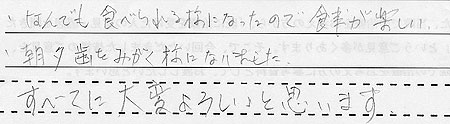 なんでも食べられる様になったので食事が楽しい。
朝夕歯をみがく様になりました。
すべてに大変よろしいと思います